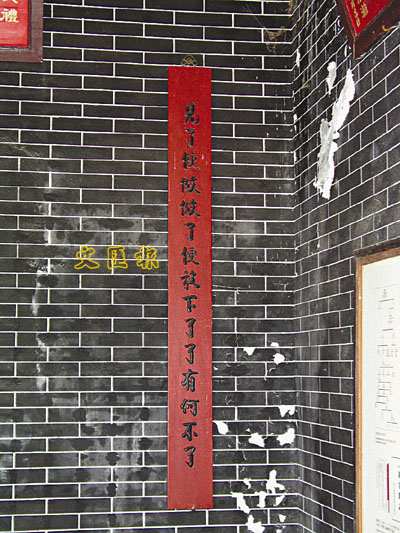 見了便做做了便放下了了有何不了
文匯報
禮